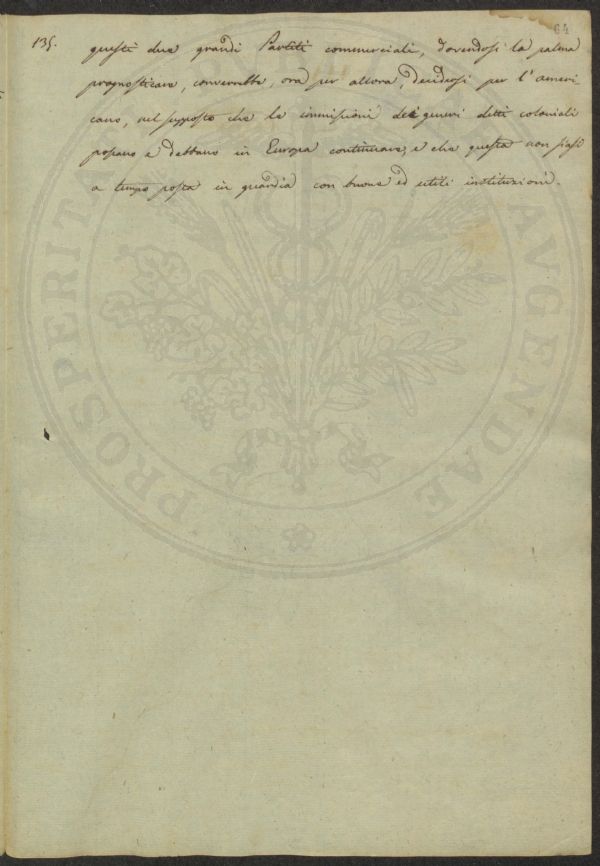 64
135. questi due grandi Partiti commerciali, dovendosi la palma
prognosticare, converrebbe, ora per allora, decidersi per l'ameri-
cano, nel supposto che le immissioni dei generi detti coloniali
possano e debbano in Europa continuare, e che questa non siasi
a tempo posta in guardia con buone ed utili instituzioni.
PROSPERITATI AVGENDAE